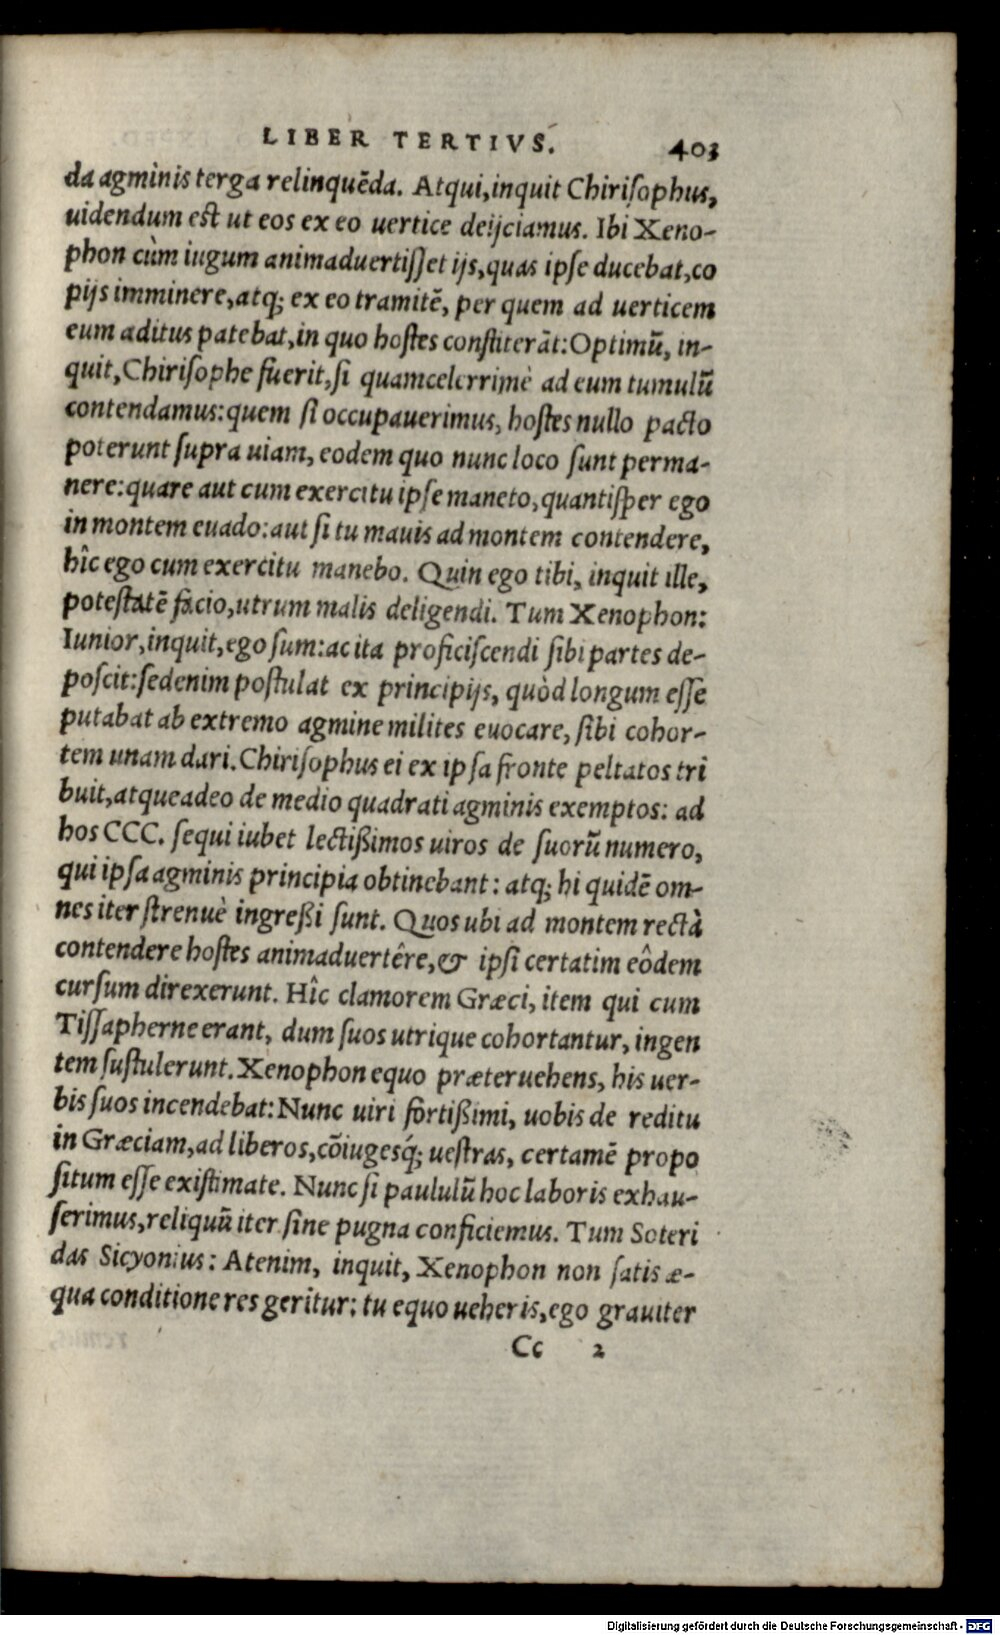 LIBER TERTIVS. 403
da agminis terga relinquēda. Atqui, inquit Chirisophus,
uidendum est ut eos ex eo uertice deijciamus. Ibi Xeno-
phon cùm iugum animaduertisset ijs, quas ipse ducebat, co
pijs imminere, atq; ex eo tramitē, per quem ad uerticem
eum aditus patebat, in quo hostes constiterāt: Optimū, in-
quit, Chirisophe fuerit, si quamcelerrimè ad eum tumulū
contendamus: quem si occupauerimus, hostes nullo pacto
poterunt supra uiam, eodem quo nunc loco sunt perma-
nere: quare aut cum exercitu ipse maneto, quantisper ego
in montem euado: aut si tu mauis ad montem contendere,
hîc ego cum exercitu manebo. Quin ego tibi, inquit ille,
potestatē facio, utrum malis deligendi. Tum Xenophon:
Iunior, inquit, ego sum: ac ita proficiscendi sibi partes de-
poscit: sed enim postulat ex principijs, quòd longum esse
putabat ab extremo agmine milites euocare, sibi cohor-
tem unam dari. Chirisophus ei ex ipsa fronte peltatos tri
buit, atque adeo de medio quadrati agminis exemptos: ad
hos CCC. sequi iubet lectißimos uiros de suorū numero,
qui ipsa agminis principia obtinebant: atq; hi quidē om-
nes iter strenuè ingreßi sunt. Quos ubi ad montem rectà
contendere hostes animaduertêre, & ipsi certatim eôdem
cursum direxerunt. Hîc clamorem Græci, item qui cum
Tissapherne erant, dum suos utrique cohortantur, ingen
tem sustulerunt. Xenophon equo præteruehens, his uer-
bis suos incendebat: Nunc uiri fortißimi, uobis de reditu
in Græciam, ad liberos, cōiugesq́; uestras, certamē propo
situm esse existimate. Nunc si paululū hoc laboris exhau-
serimus, reliquū iter sine pugna conficiemus. Tum Soteri
das Sicyonius: Atenim, inquit, Xenophon non satis æ-
qua conditione res geritur: tu equo ueheris, ego grauiter
Cc 2
Digitalisierung gefördert durch die Deutsche Forschungsgemeinschaft - DFG